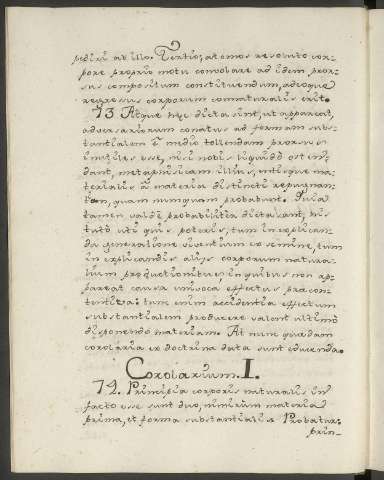 pediri ab illo. Tertio; atomos resoluto cor-
pore proprio motu convolare ad idem pror-
sus compositum constituendum, adeoque
regressus corporum connaturalis erit.
73 Atque hęc dicta sint, ut appareat,
adversariorum conatus ad formam subs-
tantialem è medio tollendam prorsus
inutiles esse, nisi nobis liquidò osten-
dant, metaphisicam illius, entisque ma-
terialis à materia distincti repugnan-
tiam, quam numquam probabunt.
tamen valdè probabilia dictabant, his
tuto uti quis poterit, tum in explican-
da generatione viventium ex semine, tum
in explicandis aliis corporum natura-
lium productionibus, in quibus non ap-
pareat causa univoca effectus præcon-
tentiva: tum enim accidentia effectum
substantialem producere valent ultimò
disponendo materiam. At nunc quædam
corolaria ex doctrina data sunt educenda.
Corolarium. I.
74. Principia corporis naturalis in
facto esse sunt duo, nimirum materia
prima, et forma substantialis Probatur:
prin-